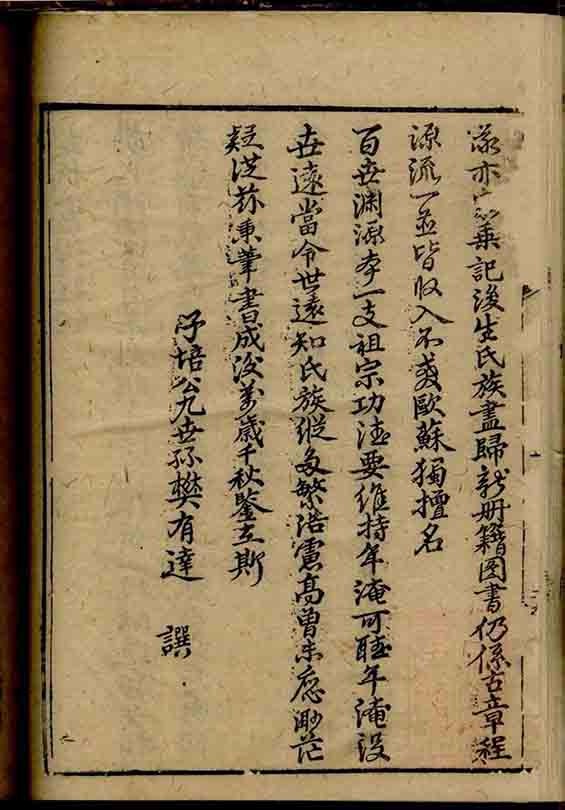 亦乗記後生氏族盡歸新册籍图書仍係古章程
源流一並皆收入不歐蘇獨擅名
百世淵源本一支祖宗功德要維持年淹可年淹没
世遠當令世遠知氏族縱多繁浩高曾未應渺茫
疑從茲秉筆書成後萬歲千秋鑒在斯
子培公九世孫樊有達 譔